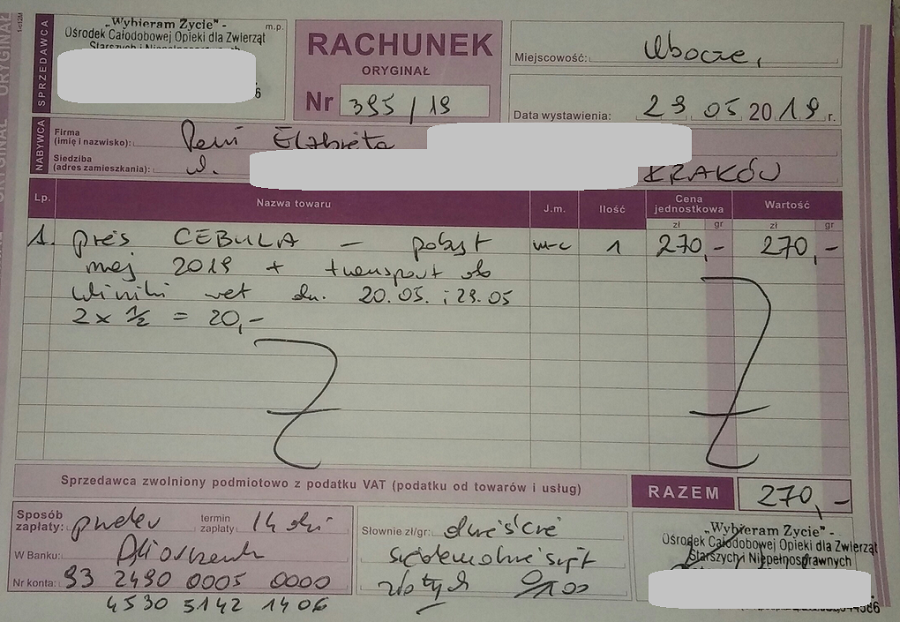 SPRZEDAWCA
„Wybieram Życie" -
m.p.
Ośrodek Całodobowej Opieki dla Zwierząt
Starszych i Niepełnosprawnych
6
RACHUNEK
ORYGINAŁ
Nr 395/19
Miejscowość: Ubocze,
Data wystawienia: 29.05.2019 r.
NABYWCA
Firma (imię i nazwisko): Pani Elżbieta
Siedziba (adres zamieszkania): ul. KRAKÓW
Lp. Nazwa towaru J.m. Ilość Cena jednostkowa Wartość
zł gr zł gr
1. pies CEBULA – pobyt m-c 1 270,- 270,-
maj 2019 + transport do
kliniki wet dn. 20.05. i 29.05
2x ½ = 20,-
Sprzedawca zwolniony podmiotowo z podatku VAT (podatku od towarów i usług)
RAZEM 270,-
Sposób zapłaty: przelew termin zapłaty: 14 dni
W Banku:
Nr konta: 93 2490 0005 0000
4530 5142 1406
Słownie zł/gr: dwieście
siedemdziesiąt
złotych 0/100
„Wybieram Życie" -
Ośrodek Całodobowej Opieki dla Zwierząt
Starszych i Niepełnosprawnych